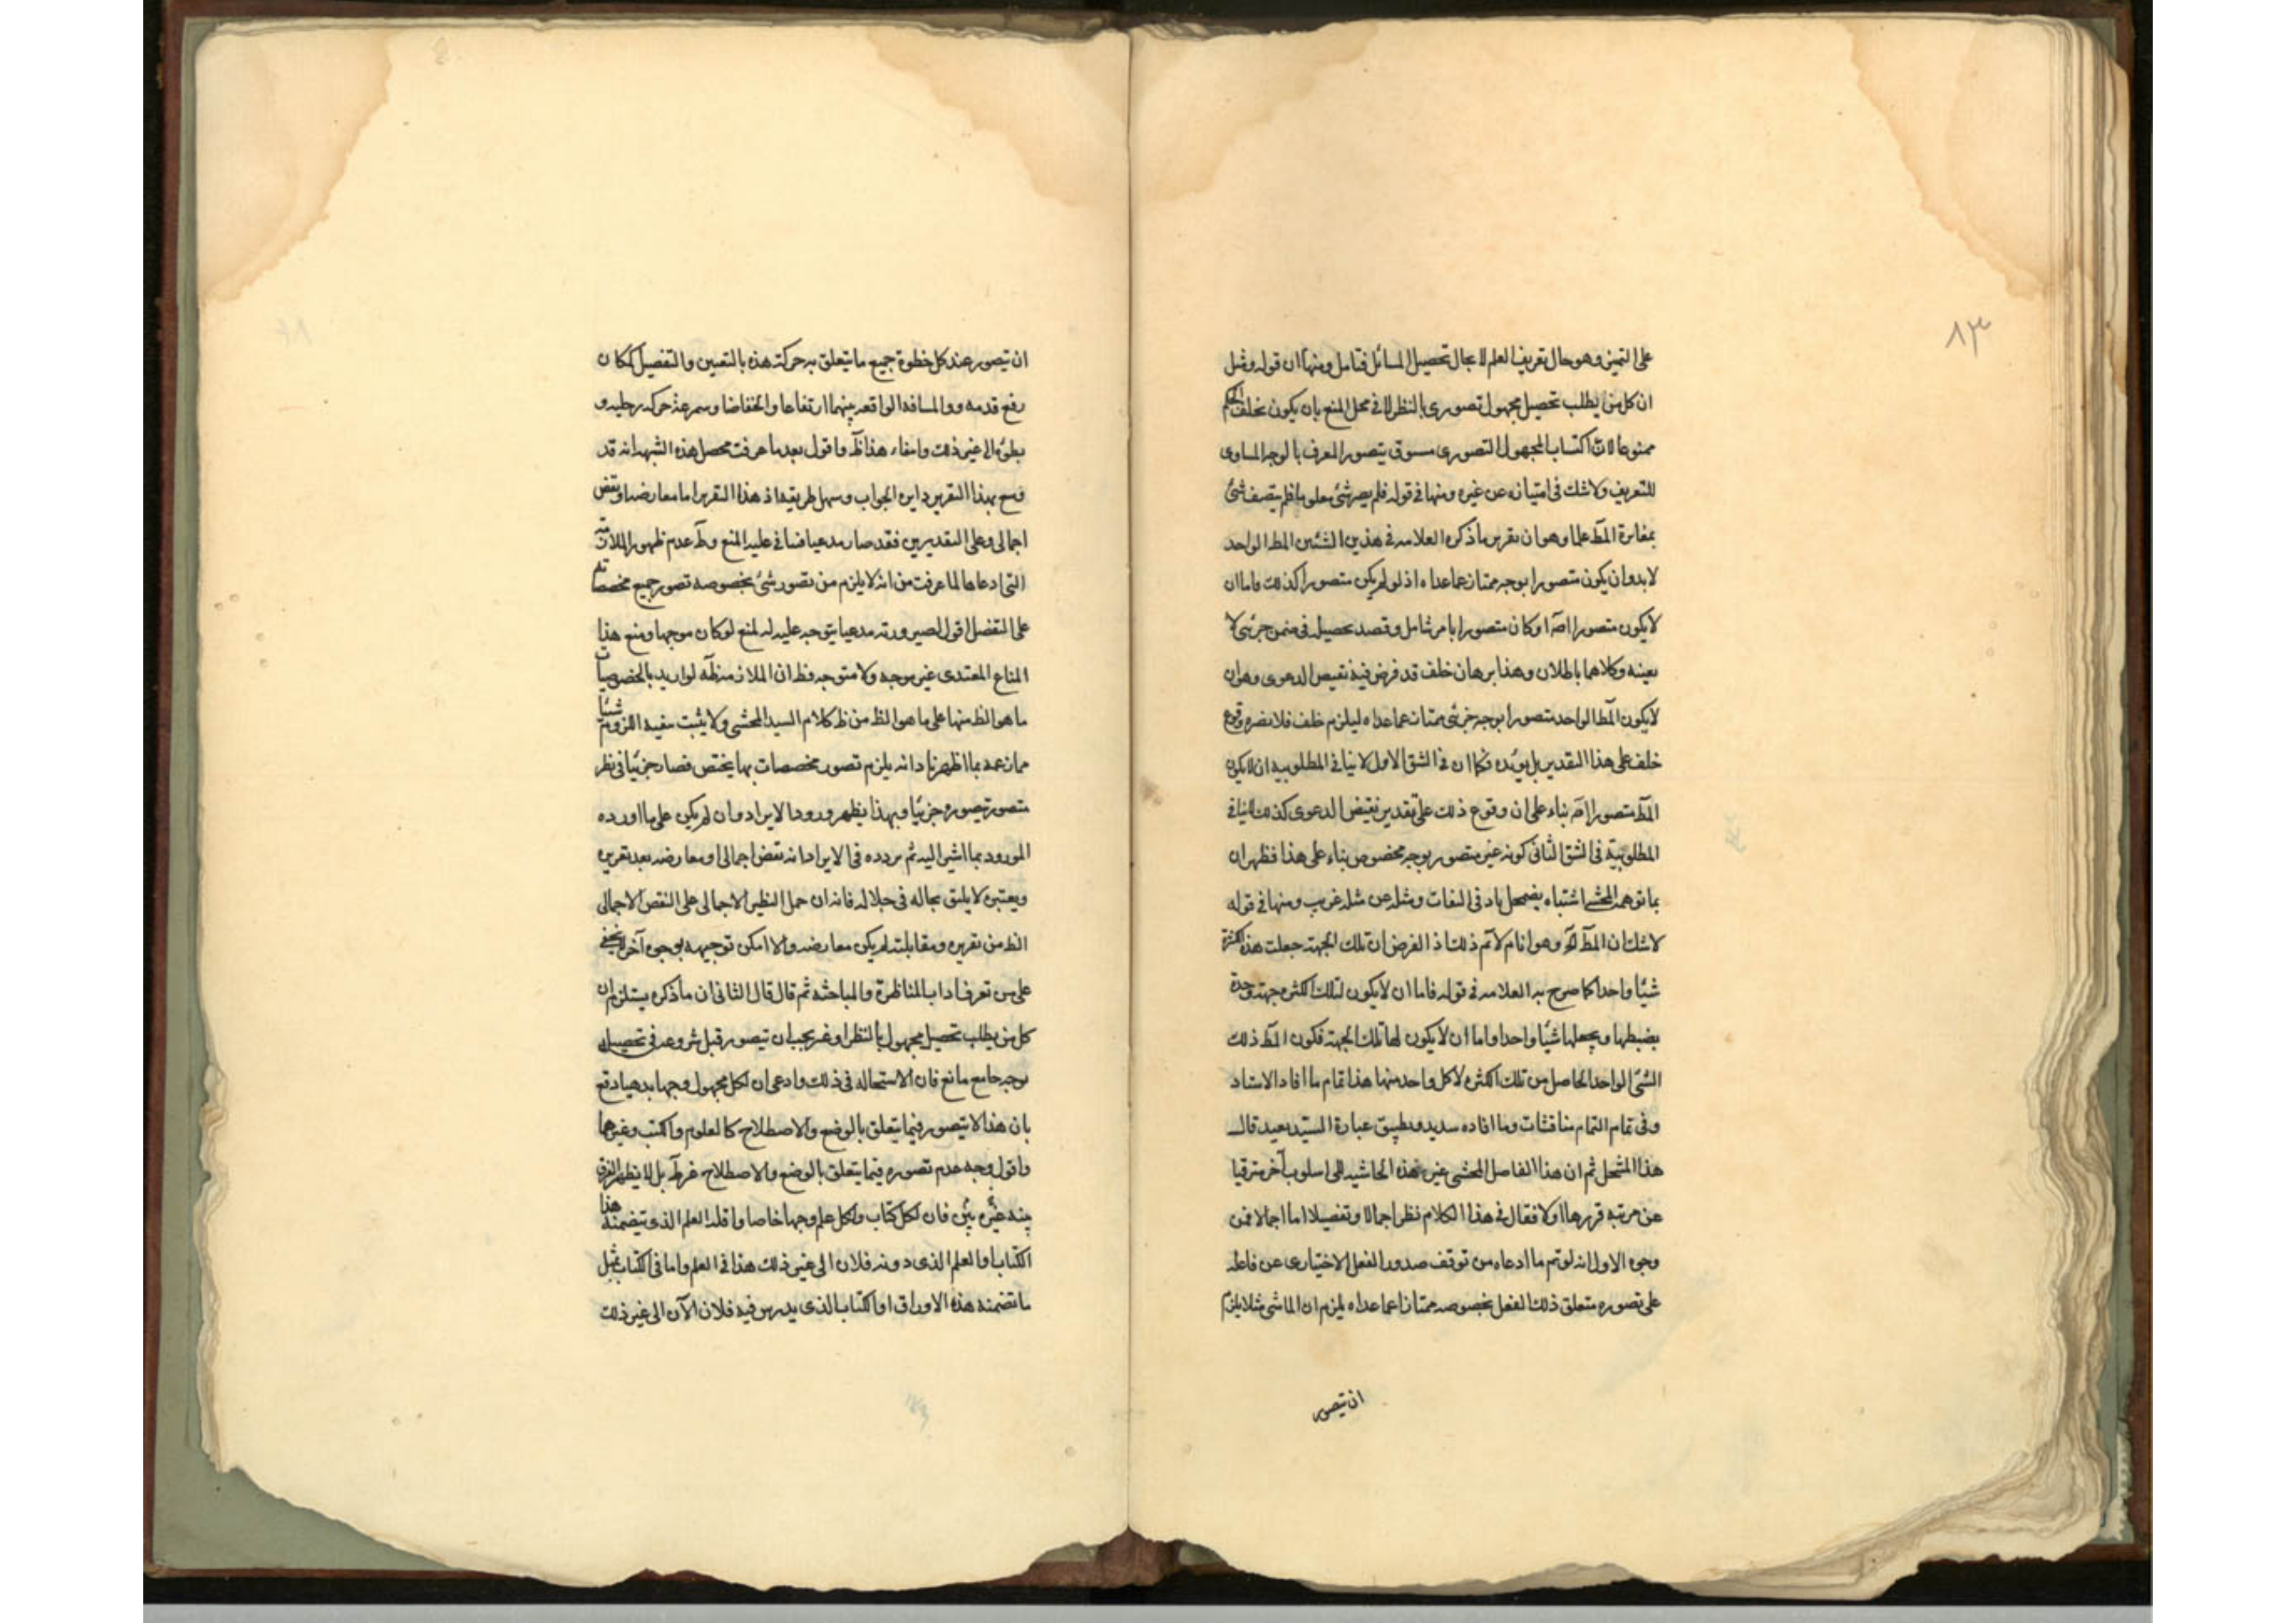 ٨٣
على التميز وهو حال تعريف العلم لا بحال تحصيل المسائل فتامل ومنها ان قوله ومثل
ان كل من يطلب تحصيل مجهول تصورى بالنظر لا فى محل المنع بان يكون تخلف الحكم
ممنوعا لان اكتساب المجهول التصورى مسبوق بتصور المعرف بالوجه المساوى
للتعريف ولا شك فى امتيازه عن غيره ومنها فى قوله فلم يصر شئ معلوما فلم يتصف شئ
بمغايرة المط علما وهو ان تقرير ما ذكره العلامه فى هذين الشيئين المط الواحد
لا بد وان يكون متصورا بوجه ممتاز عما عداه اذ لو لم يكن متصورا كذلك فاما ان
لا يكون متصورا اصلا او كان متصورا بامر شامل وقصد تحصيله فى ضمن جزئى لا
بعينه وكلاهما باطلان وهذا برهان خلف قد فرض فيه نقيض الدعوى وهو ان
لا يكون المط الواحد متصورا بوجه جزئى ممتاز عما عداه ليلزم خلف فلا يضره وقوع
خلف على هذا التقدير بل يؤيده فكما ان فى الشق الاول لا ينافى المطلوبيه ان لا يكون
المط متصورا اصلا بناء على ان وقوع ذلك على تقدير نقيض الدعوى كذلك لا ينافى
المطلوبية فى الشق الثانى كونه غير متصور بوجه مخصوص بناء على هذا فظهر ان
ما توهمه المحشى اشتباه يضمحل بادنى التفات ومثله عن مثله غريب ومنها فى قوله
لا شك ان المط وهو انا م لا تم ذلك اذ الفرض ان تلك الجهة جعلت هذه الكثرة
شيئا واحدا كما صرح به العلامه فى قوله فاما ان لا يكون لتلك الكثرة جهة وحدة
يضبطها ويجعلها شيئا واحدا واما ان لا يكون لها تلك الجهة فكون المط ذلك
الشئ الواحد الحاصل من تلك الكثرة لا كل واحد منها هذا تمام ما افاد الاستاد
وفى تمام التمام مناقشات وما افاده سديد وتطبيق عبارة السيد بعيد قال
هذا المتحل ثم ان هذا الفاضل المحشى غير هذه الحاشيه الى اسلوب آخر مترقيا
عن مرتبة قررها اولا فقال فى هذا الكلام نظر اجمالا وتفصيلا اما اجمالا فمن
وجوه الاول انه لو تم ما ادعاه من توقف صدور الفعل الاختيارى عن فاعله
على تصوره متعلق ذلك الفعل بخصوصه ممتازا عما عداه يلزم ان الماشى مثلا يلزم
ان يتصور
ان يتصور عند كل خطوة جميع ما يتعلق به حركته هذه بالتعيين والتفصيل كمكان
رفع قدمه والمسافه الواقعه بينهما ارتفاعا وانخفاضا وسرعة حركه رجليه و
بطؤه الى غير ذلك وانتفاء هذا ظ واقول بعد ما عرفت محصل هذه الشبهه انه قد
وسع بهذا التقرير دايره الجواب وسهل طريقه اذ هذا التقرير اما معارضة او نقض
اجمالى وعلى التقديرين فقد صار مدعيا فيا فى عليه المنع وط عدم ظهور الملازمة
التى ادعاها لما عرفت من انه لا يلزم من تصور شئ بخصوصه تصور جميع مخصصاته
على التفصيل اقول لصيرورته مدعيا يتوجه عليه له لمنع لو كان موجها ومنع هذا
المناع المعتدى غير موجه ولا متوجه فظ ان الملازمة ظه لو اريد بالخصوصيات
ما هو الظ منها على ما هو الظ من ظ كلام السيد المحشى ولا يثبت مفيد اللزوم شيئا
مما زعمه بما اظهرنا دانه يلزم تصور مخصصات بها يختص فصار جزئيا فى نظر
متصور تصوره جزئيا وبهذا يظهر ورود الايراد وان لم يكن على ما اورده
المورود بما اشير اليه ثم تردده فى الايراد انه نقض اجمالى او معارضه بعد تقريره
ويعتبره لا يليق بحاله فى جلاله فانه ان حمل النظير الاجمالى على النقض الاجمالى
الظ من تقريره ومقابلته لم يكن معارضه والا امكن توجيهه بوجوه آخر لا يخفى
على من تعرف اداب المناظرة والمباحثه ثم قال قال الثانى ان ما ذكره يستلزم ان
كل من يطلب تحصيل مجهول بالنظر او غيره يجب ان يتصور قبل شروعه فى تحصيله
بوجه جامع مانع فان الاستحاله فى ذلك وادعى ان لكل مجهول وجها بديهيا دفع
بان هذا لا يتصور فيما يتعلق بالوضع والاصطلاح كالعلوم والكتب وغيرهما
واقول وجه عدم تصوره فيما يتعلق بالوضع والاصطلاح غير ظ بل لا يظهر الفرق
بينه غيره بين فان لكل كتاب ولكل علم وجها خاصا واقله العلم الذى يتضمنه هذا
الكتاب او العلم الذى دونه فلان الى غير ذلك هذا فى العلم واما فى الكتاب فمثل
ما تضمنه هذه الاوراق او الكتاب الذى يدرس فيه فلان الآن الى غير ذلك